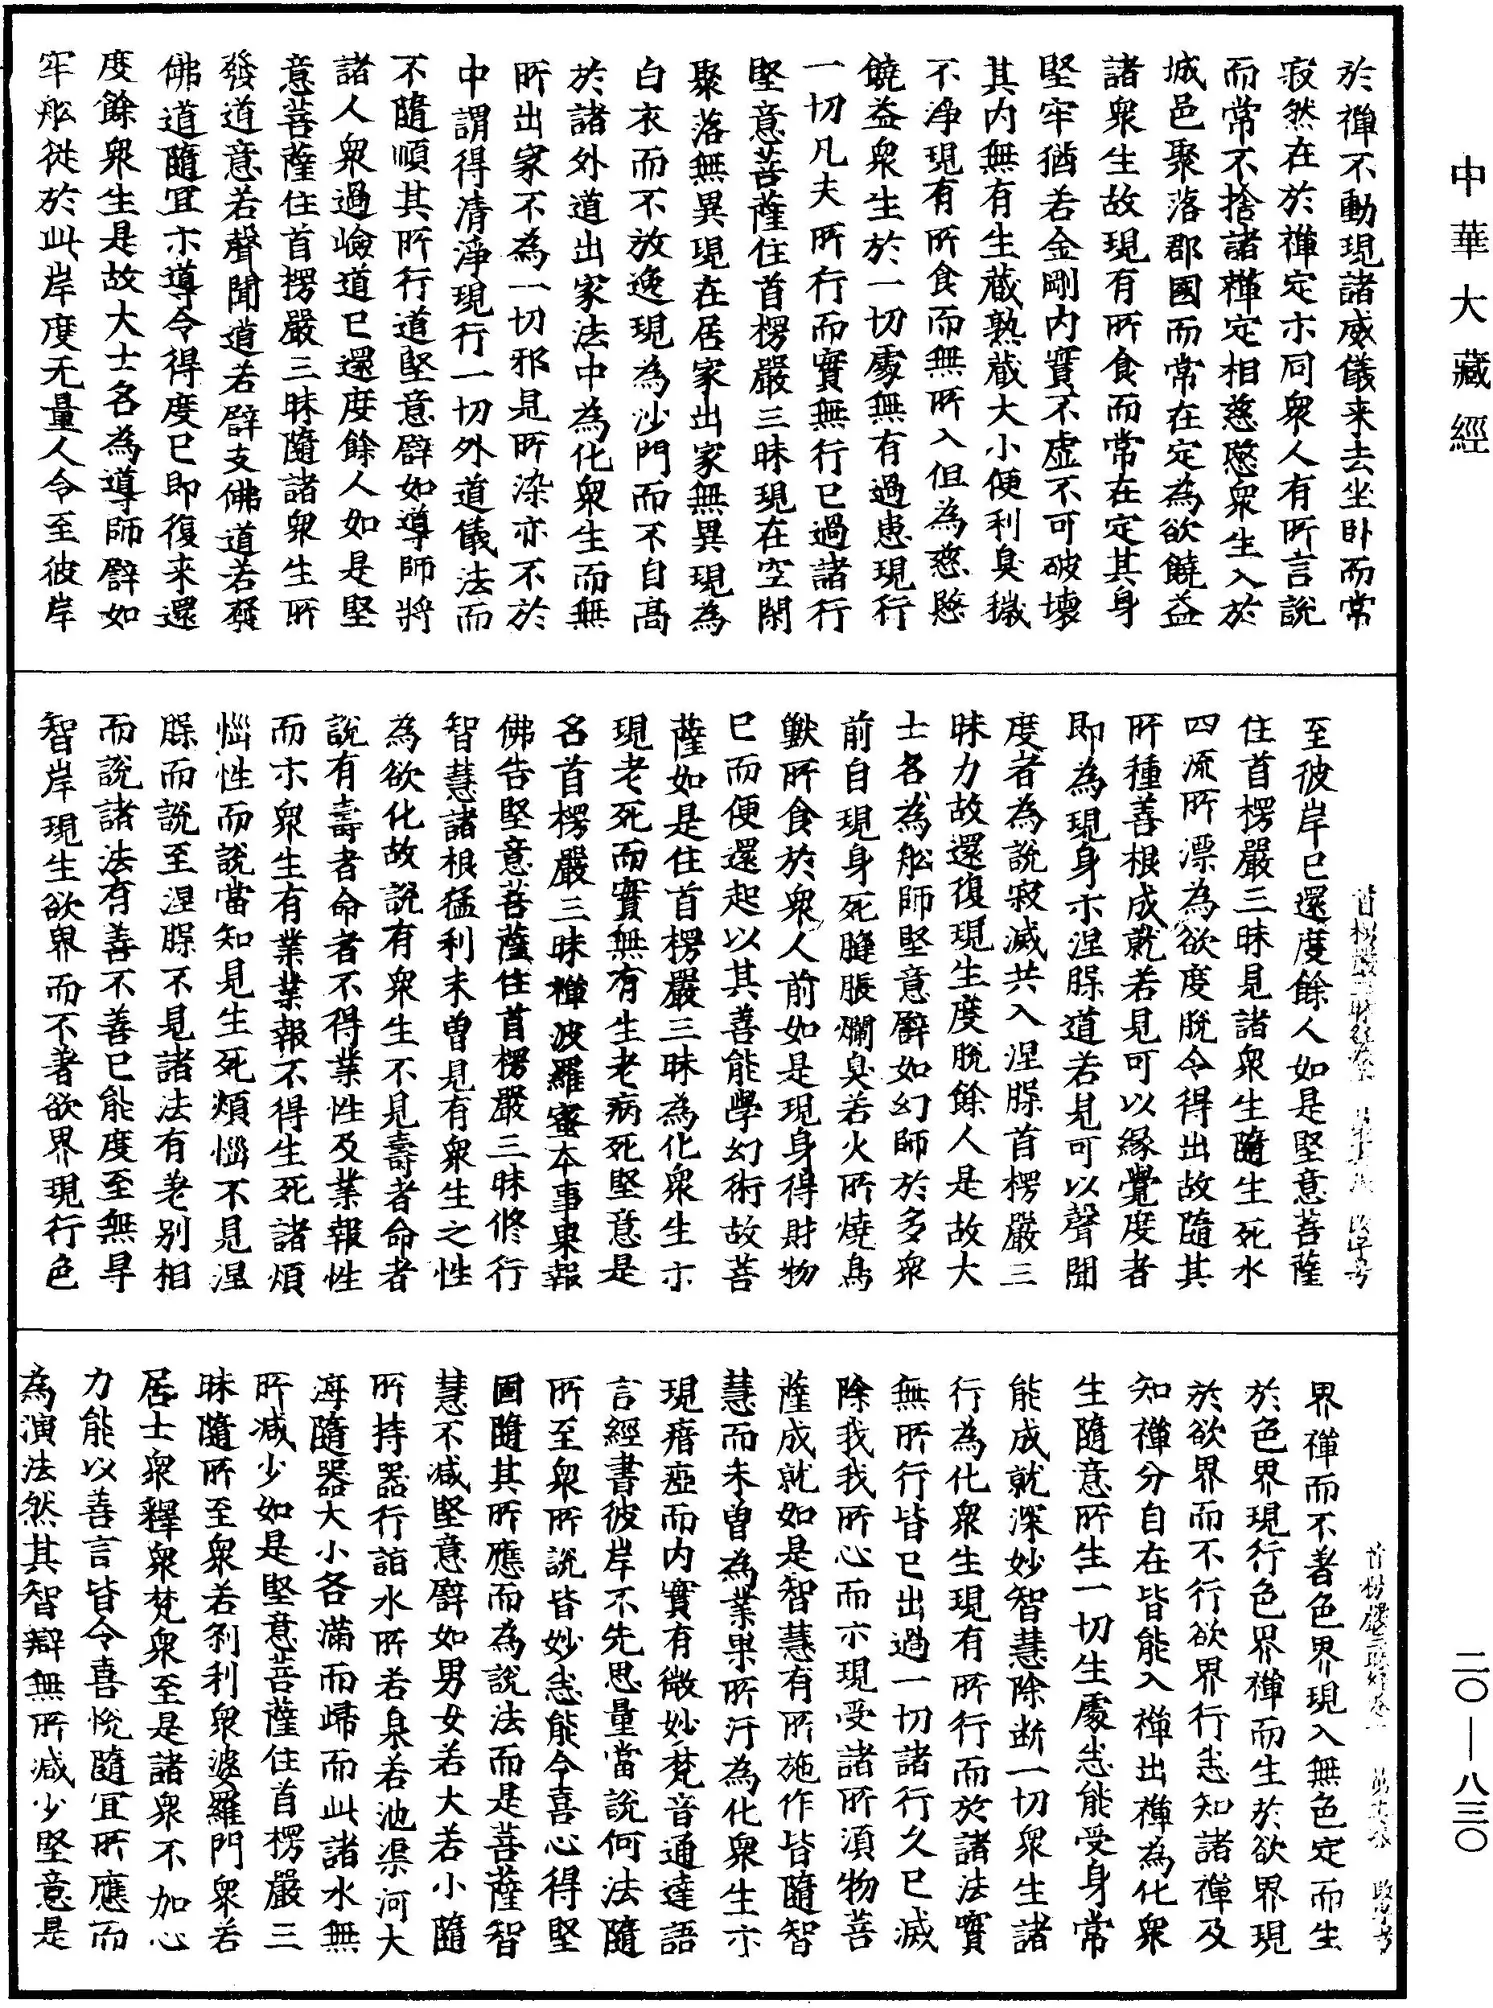 中華大藏經
於禪不動現諸威儀来去坐卧而常
寂然在於禪定亦同衆人有所言說
而常不捨諸禪定相慈愍衆生入於
城邑聚落郡國而常在定為欲饒益
諸衆生故現有所食而常在定其身
堅牢猶若金剛內實不虛不可破壞
其內無有生蔵熟蔵大小便利臭穢
不淨現有所食而無所入但為慈愍
饒益衆生於一切處無有過患現行
一切凡夫所行而實無行已過諸行
堅意菩薩住首楞嚴三昧現在空閑
聚落無異現在居家出家無異現為
白衣而不放逸現為沙門而不自高
於諸外道出家法中為化衆生而無
所出家不為一切邪見所染亦不於
中謂得清淨現行一切外道儀法而
不隨順其所行道堅意譬如導師將
諸人衆過嶮道已還度餘人如是堅
意菩薩住首楞嚴三昧隨諸衆生所
發道意若聲聞道若辟支佛道若發
佛道隨宜示導令得度已即復来還
度餘衆生是故大士名為導師譬如
牢舩從於此岸度无量人令至彼岸
至彼岸已還度餘人如是堅意菩薩
住首楞嚴三昧見諸衆生隨生死水
四流所漂為欲度脫令得出故隨其
所種善根成就若見可以緣覺度者
即為現身示涅槃道若見可以聲聞
度者為說寂滅共入涅槃首楞嚴三
昧力故還復現生度脫餘人是故大
士名為舩師堅意譬如幻師於多衆
前自現身死膖脹爛臭若火所燒鳥
獸所食於衆人前如是現身得財物
已而便還起以其善能學幻術故菩
薩如是住首楞嚴三昧為化衆生示
現老死而實無有生老病死堅意是
名首楞嚴三昧禪波羅蜜本事果報
佛告堅意菩薩住首楞嚴三昧修行
智慧諸根猛利未曾見有衆生之性
為欲化故說有衆生不見壽者命者
說有壽者命者不得業性及業報性
而示衆生有業業報不得生死諸煩
惱性而說當知見生死煩惱不見涅
槃而說至涅槃不見諸法有差別相
而說諸法有善不善已能度至無㝵
智岸現生欲界而不著欲界現行色
界禪而不著色界現入無色定而生
於色界現行色界禪而生於欲界現
於欲界而不行欲界行悉知諸禪及
知禪分自在皆能入禪出禪為化衆
生隨意所生一切生處悉能受身常
能成就深妙智慧除断一切衆生諸
行為化衆生現有所行而於諸法實
無所行皆已出過一切諸行久已滅
除我我所心而示現受諸所湏物菩
薩成就如是智慧有所施作皆隨智
慧而未曾為業果所汙為化衆生示
現瘖瘂而內實有微妙梵音通達語
言經書彼岸不先思量當說何法隨
所至衆所說皆妙悉能令喜心得堅
固隨其所應而為說法而是菩薩智
慧不減堅意譬如男女若大若小隨
所持器行詣水所若泉若池渠河大
海隨器大小各滿而歸而此諸水無
所减少如是堅意菩薩住首楞嚴三
昧隨所至衆若剎利衆婆羅門衆若
居士衆釋衆梵衆至是諸衆不加心
力能以善言皆令喜悅隨宜所應而
為演法然其智辯無所减少堅意是
二〇—八三〇